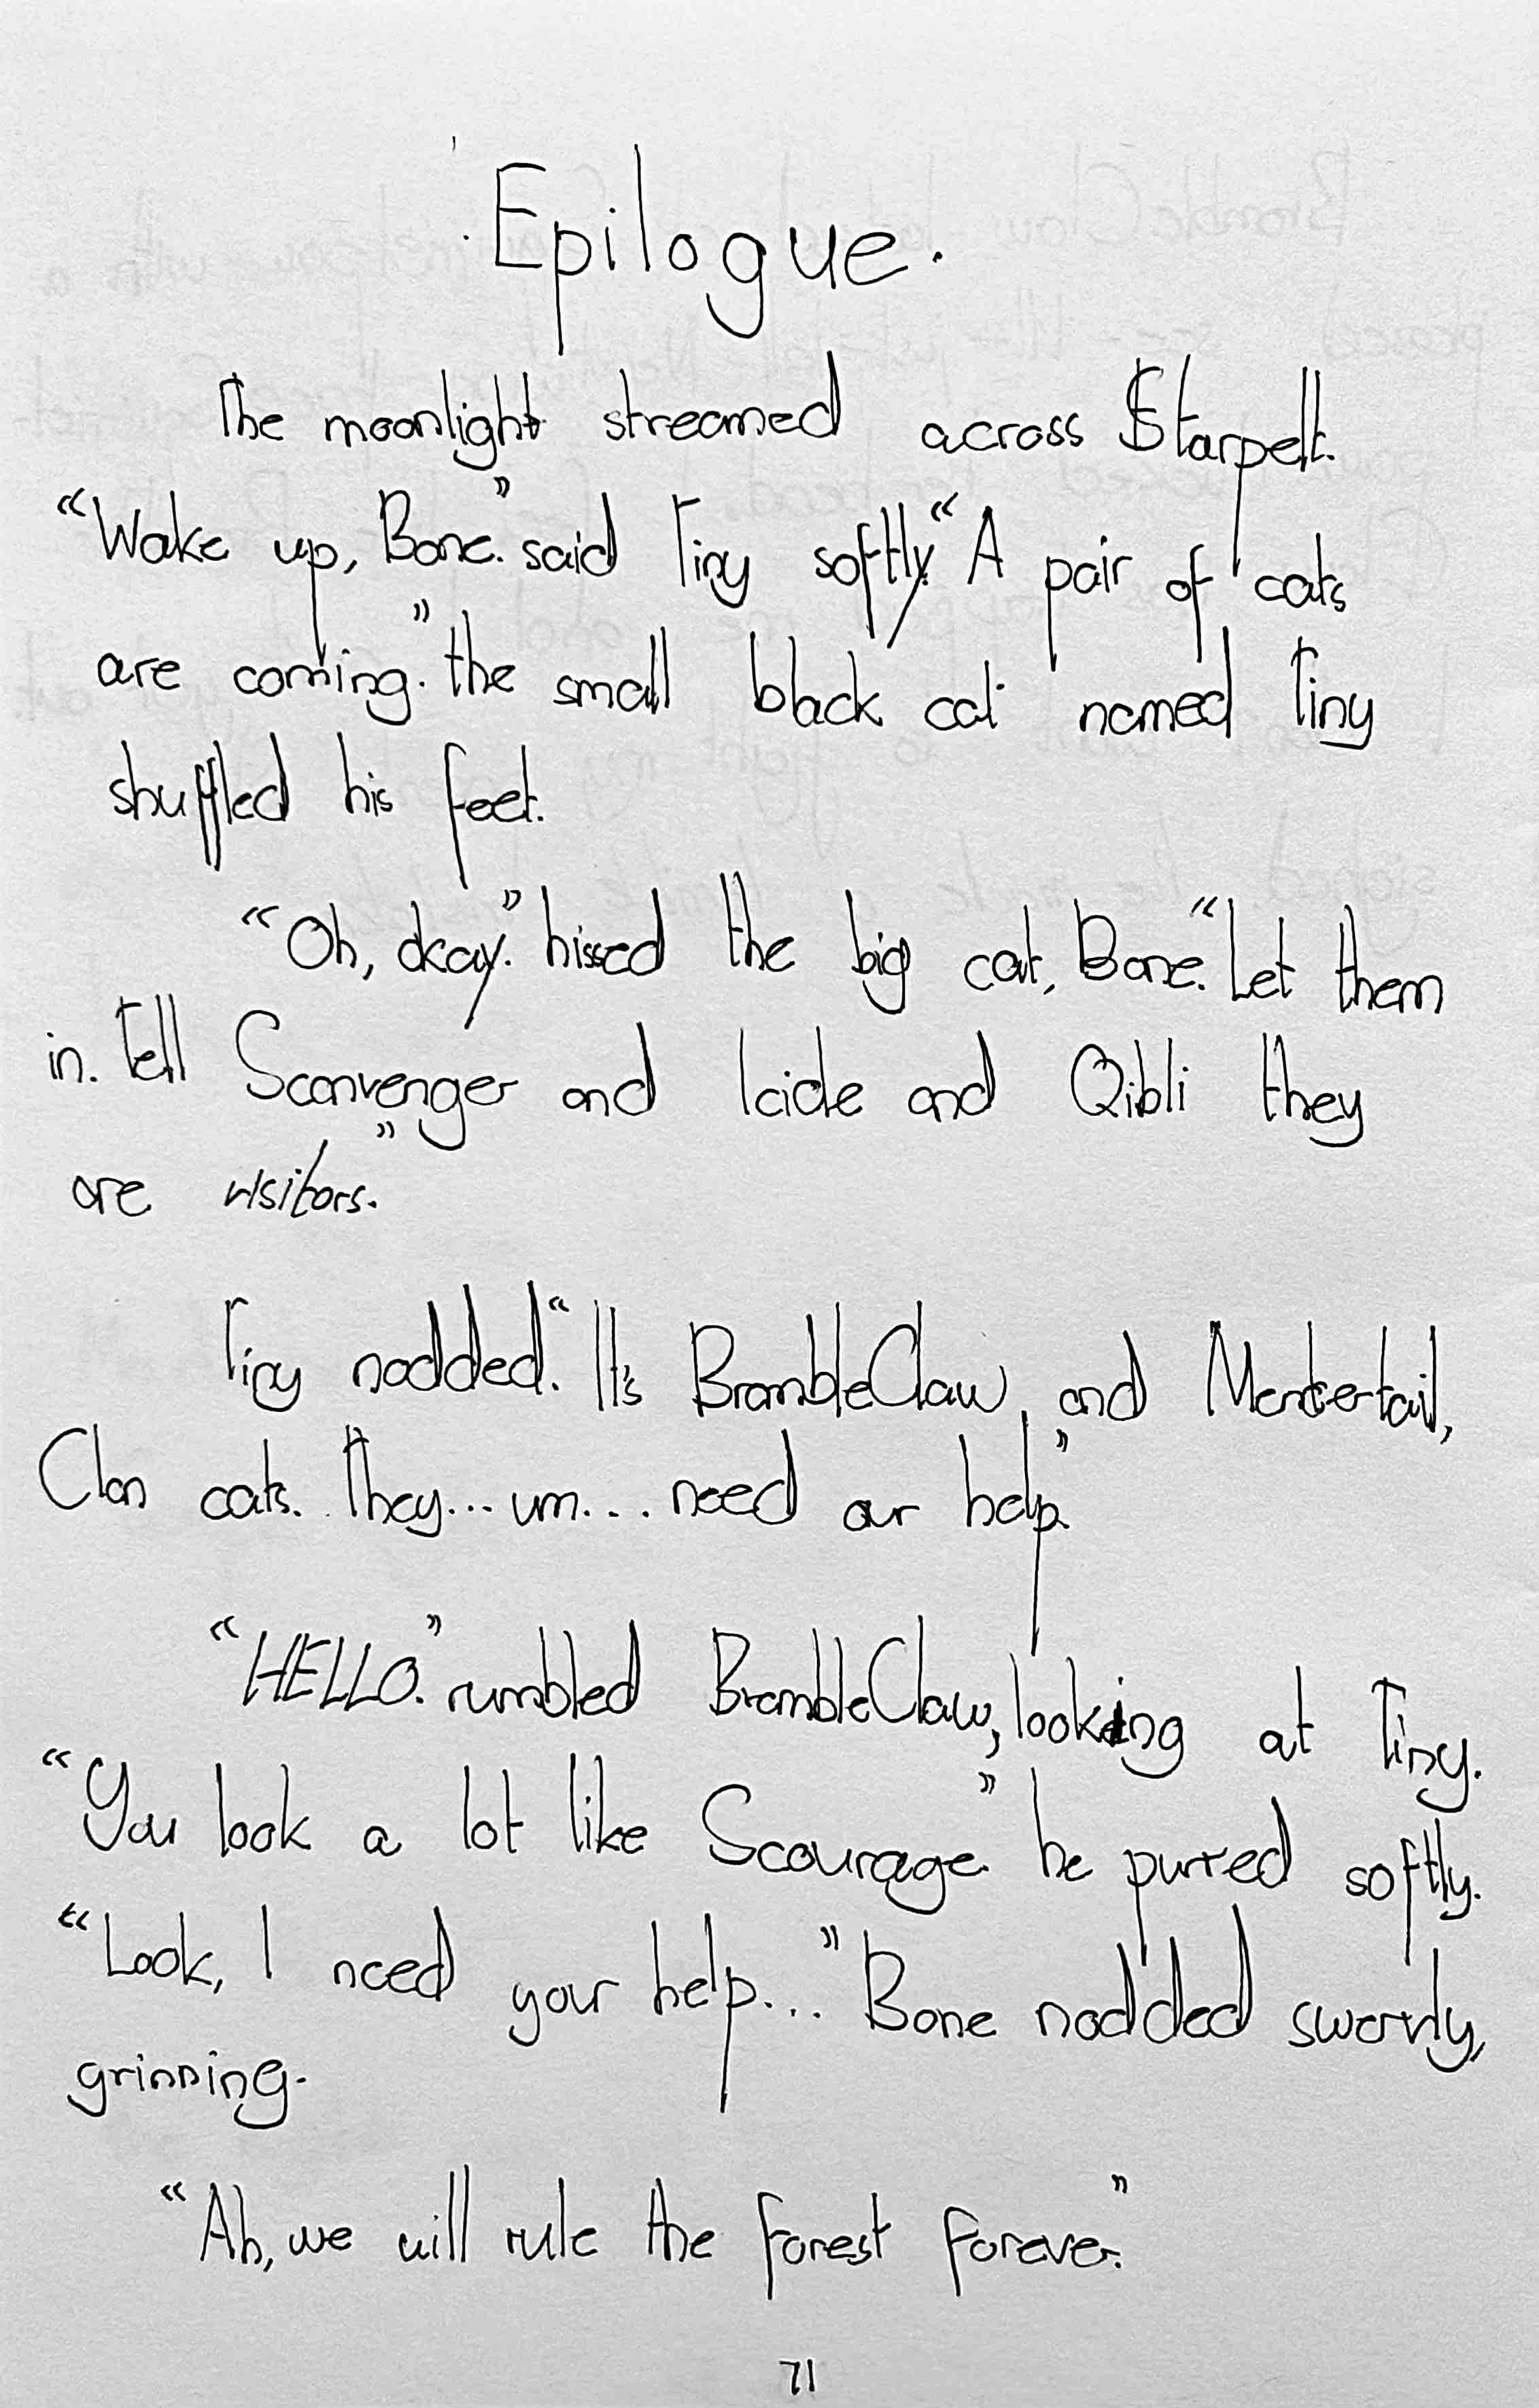 Epilogue.
The moonlight streamed across Starpelt.
"Wake up, Bone." said Tiny softly. "A pair of cats
are coming." the small black cat named Tiny
shuffled his feet.
"Oh, okay." hissed the big cat, Bone. "Let them
in. Tell Scanvenger and Icicle and Qibli they
are visitors."
Tiny nodded. "It's BrambleClaw, and Mentertail,
Clan cats. They... um... need our help."
"HELLO." rumbled BrambleClaw, looking at Tiny.
"You look a lot like Scourage." he purred softly.
"Look, I need your help..." Bone nodded
grinning.
"Ah, we will rule the forest forever."
71